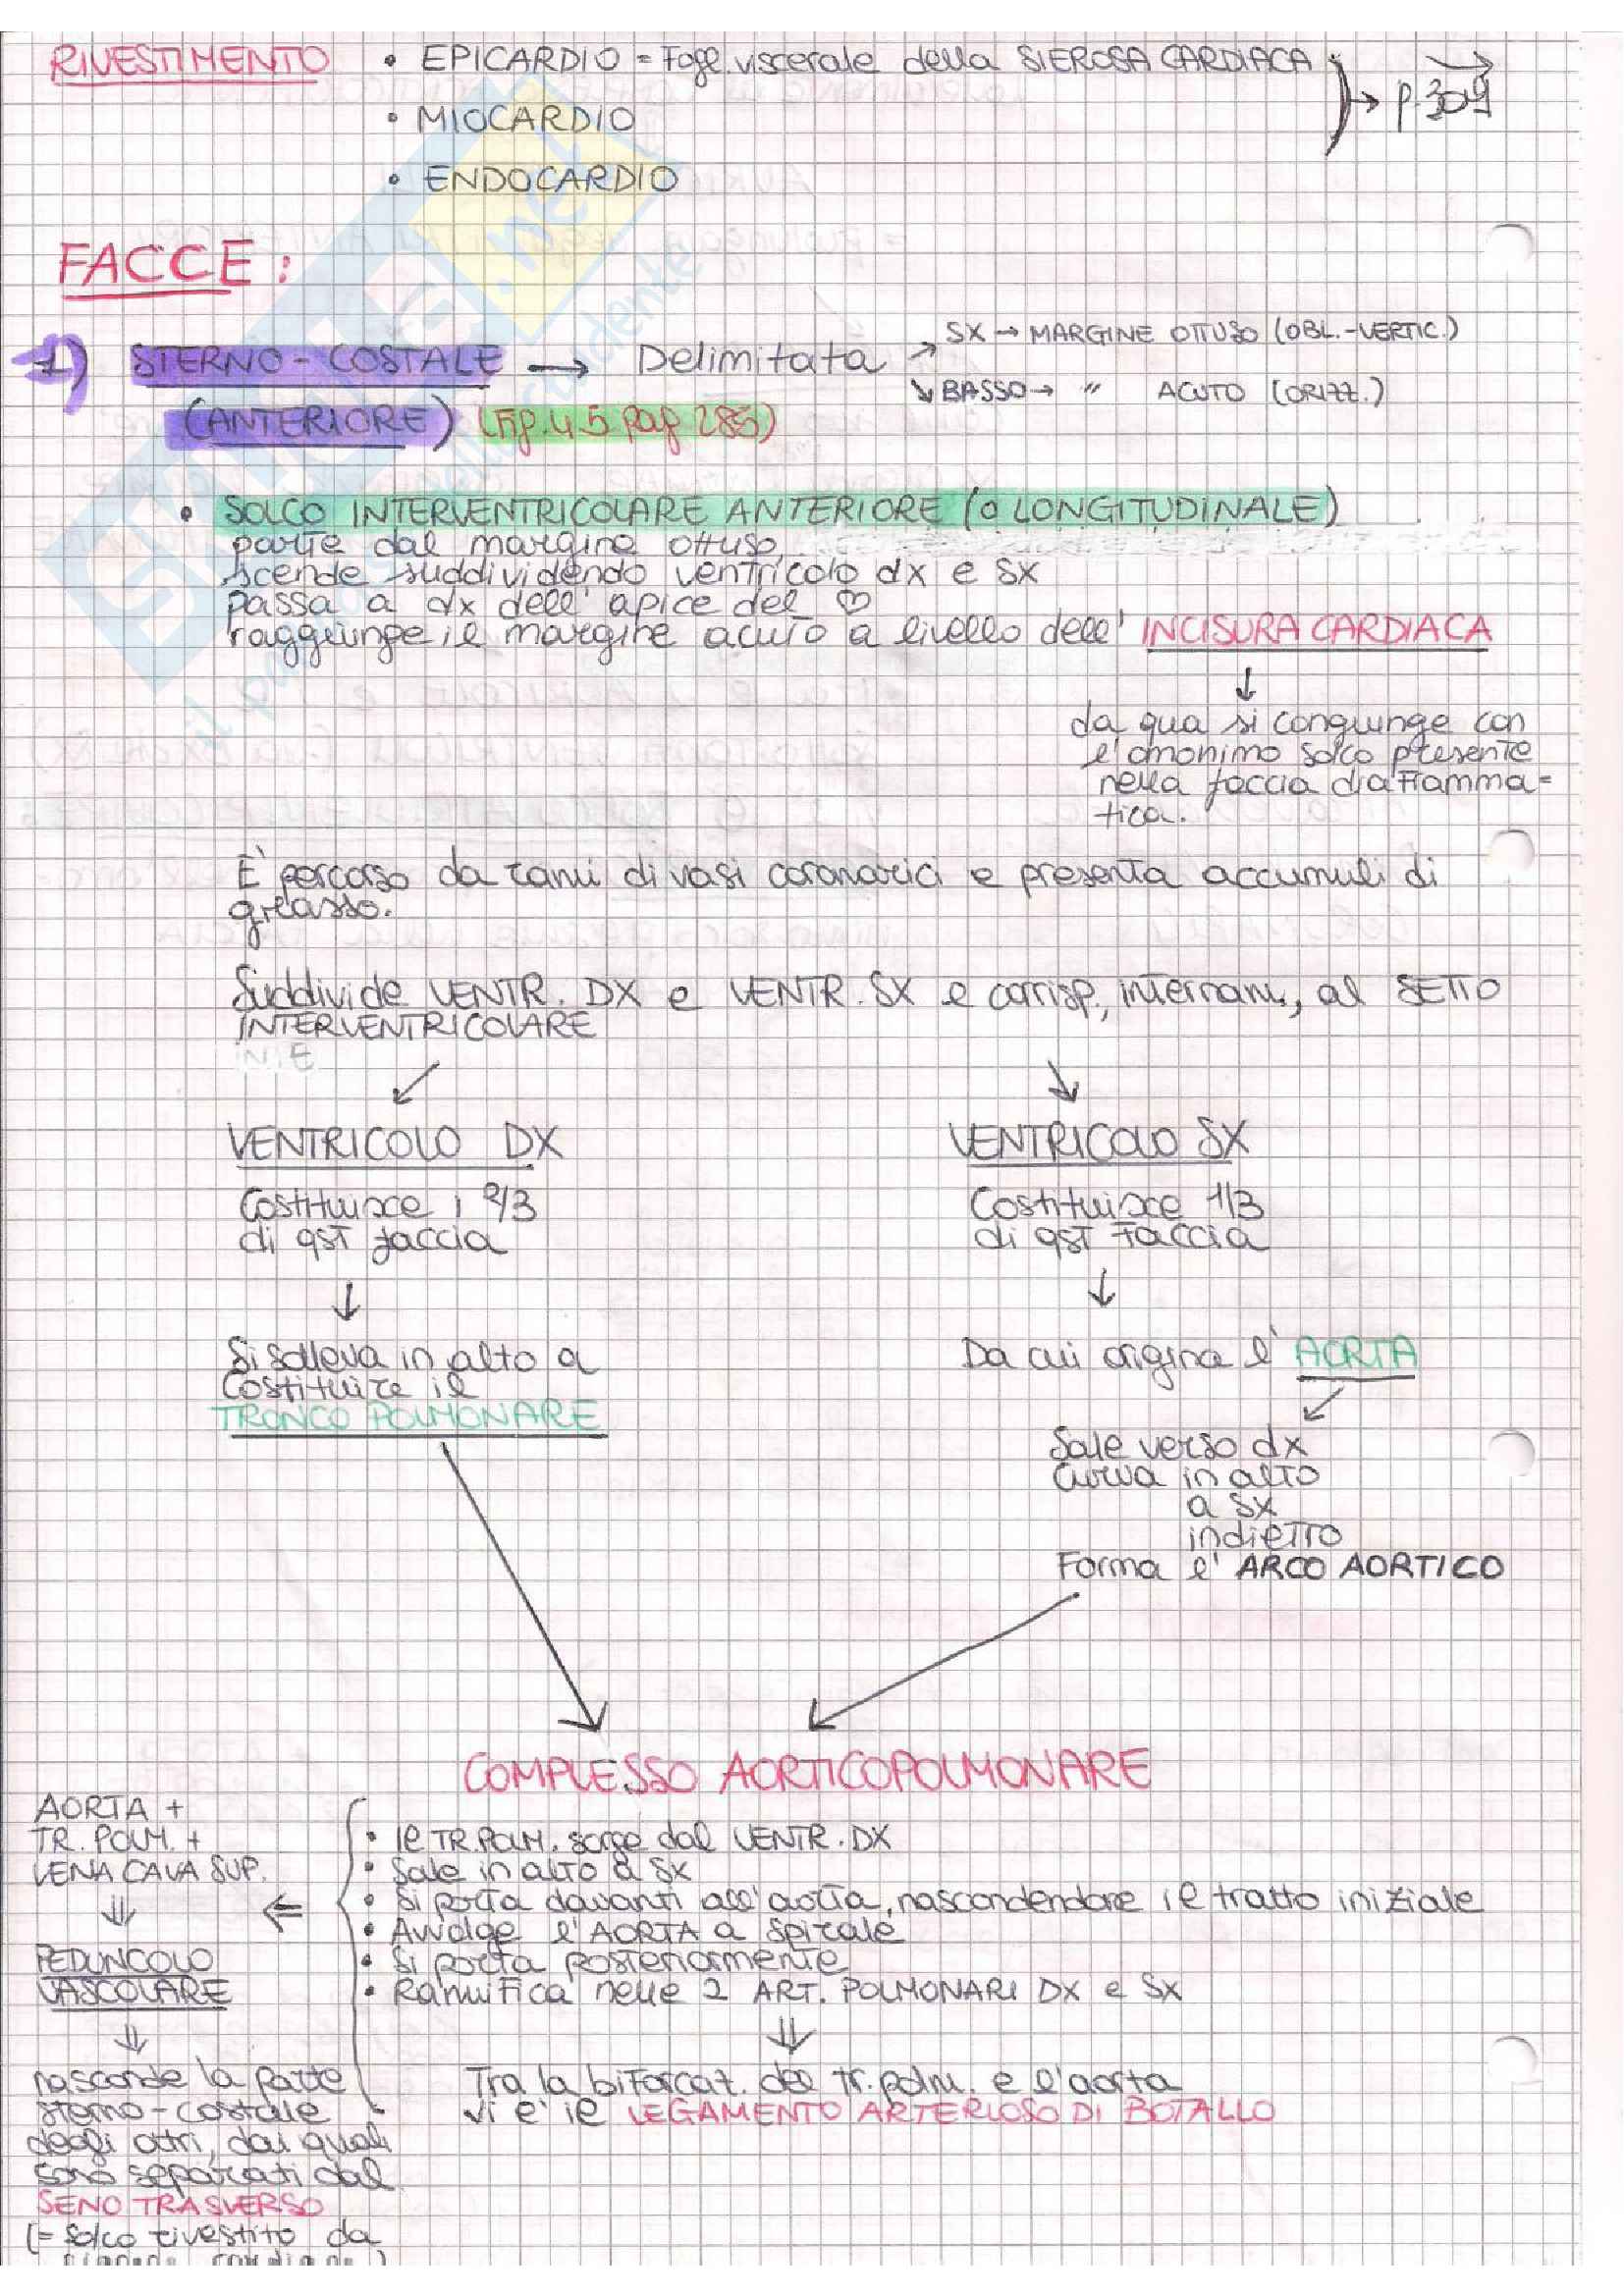 RIVESTIMENTO • EPICARDIO = Fogl. viscerale della SIEROSA CARDIACA
• MIOCARDIO
→ p. 309
• ENDOCARDIO
FACCE:
1) STERNO-COSTALE → Delimitata ↗ SX → MARGINE OTTUSO (OBL.-VERTIC.)
↘ BASSO → " ACUTO (ORIZZ.)
(ANTERIORE) (Fig. 4.5 pag 285)
• SOLCO INTERVENTRICOLARE ANTERIORE (O LONGITUDINALE)
parte dal margine ottuso,
scende suddividendo ventricolo dx e sx
passa a dx dell'apice del ♡
raggiunge il margine acuto a livello dell'INCISURA CARDIACA
↓
da qua si congiunge con
l'omonimo solco presente
nella faccia diaframma=
tica.
È percorso da rami di vasi coronarici e presenta accumuli di
grasso.
Suddivide VENTR. DX e VENTR. SX e corrisp, internam, al SETTO
INTERVENTRICOLARE
↙ ↘
VENTRICOLO DX
Costituisce i 2/3
di qst faccia
↓
Si solleva in alto a
costituire il
TRONCO POLMONARE
VENTRICOLO SX
Costituisce 1/3
di qst faccia
↓
Da cui origina l'AORTA
Sale verso dx
curva in alto
a sx
indietro
Forma l'ARCO AORTICO
COMPLESSO AORTICOPOLMONARE
• Il TR. POLM. sorge dal VENTR. DX
• Sale in alto a sx
• Si porta davanti all'aorta, nascondendone il tratto iniziale
• Avvolge l'AORTA a spirale
• Si porta posteriormente
• Ramifica nelle 2 ART. POLMONARI DX e SX
⇓
Tra la biforcat. del tr. polm. e l'aorta
vi è il LEGAMENTO ARTERIOSO DI BOTALLO
AORTA +
TR. POLM. +
VENA CAVA SUP.
⇓
PEDUNCOLO
VASCOLARE
⇓
nasconde la parte
sterno-costale
degli atri, dai quali
sono separati dal
SENO TRASVERSO
(= solco rivestito da